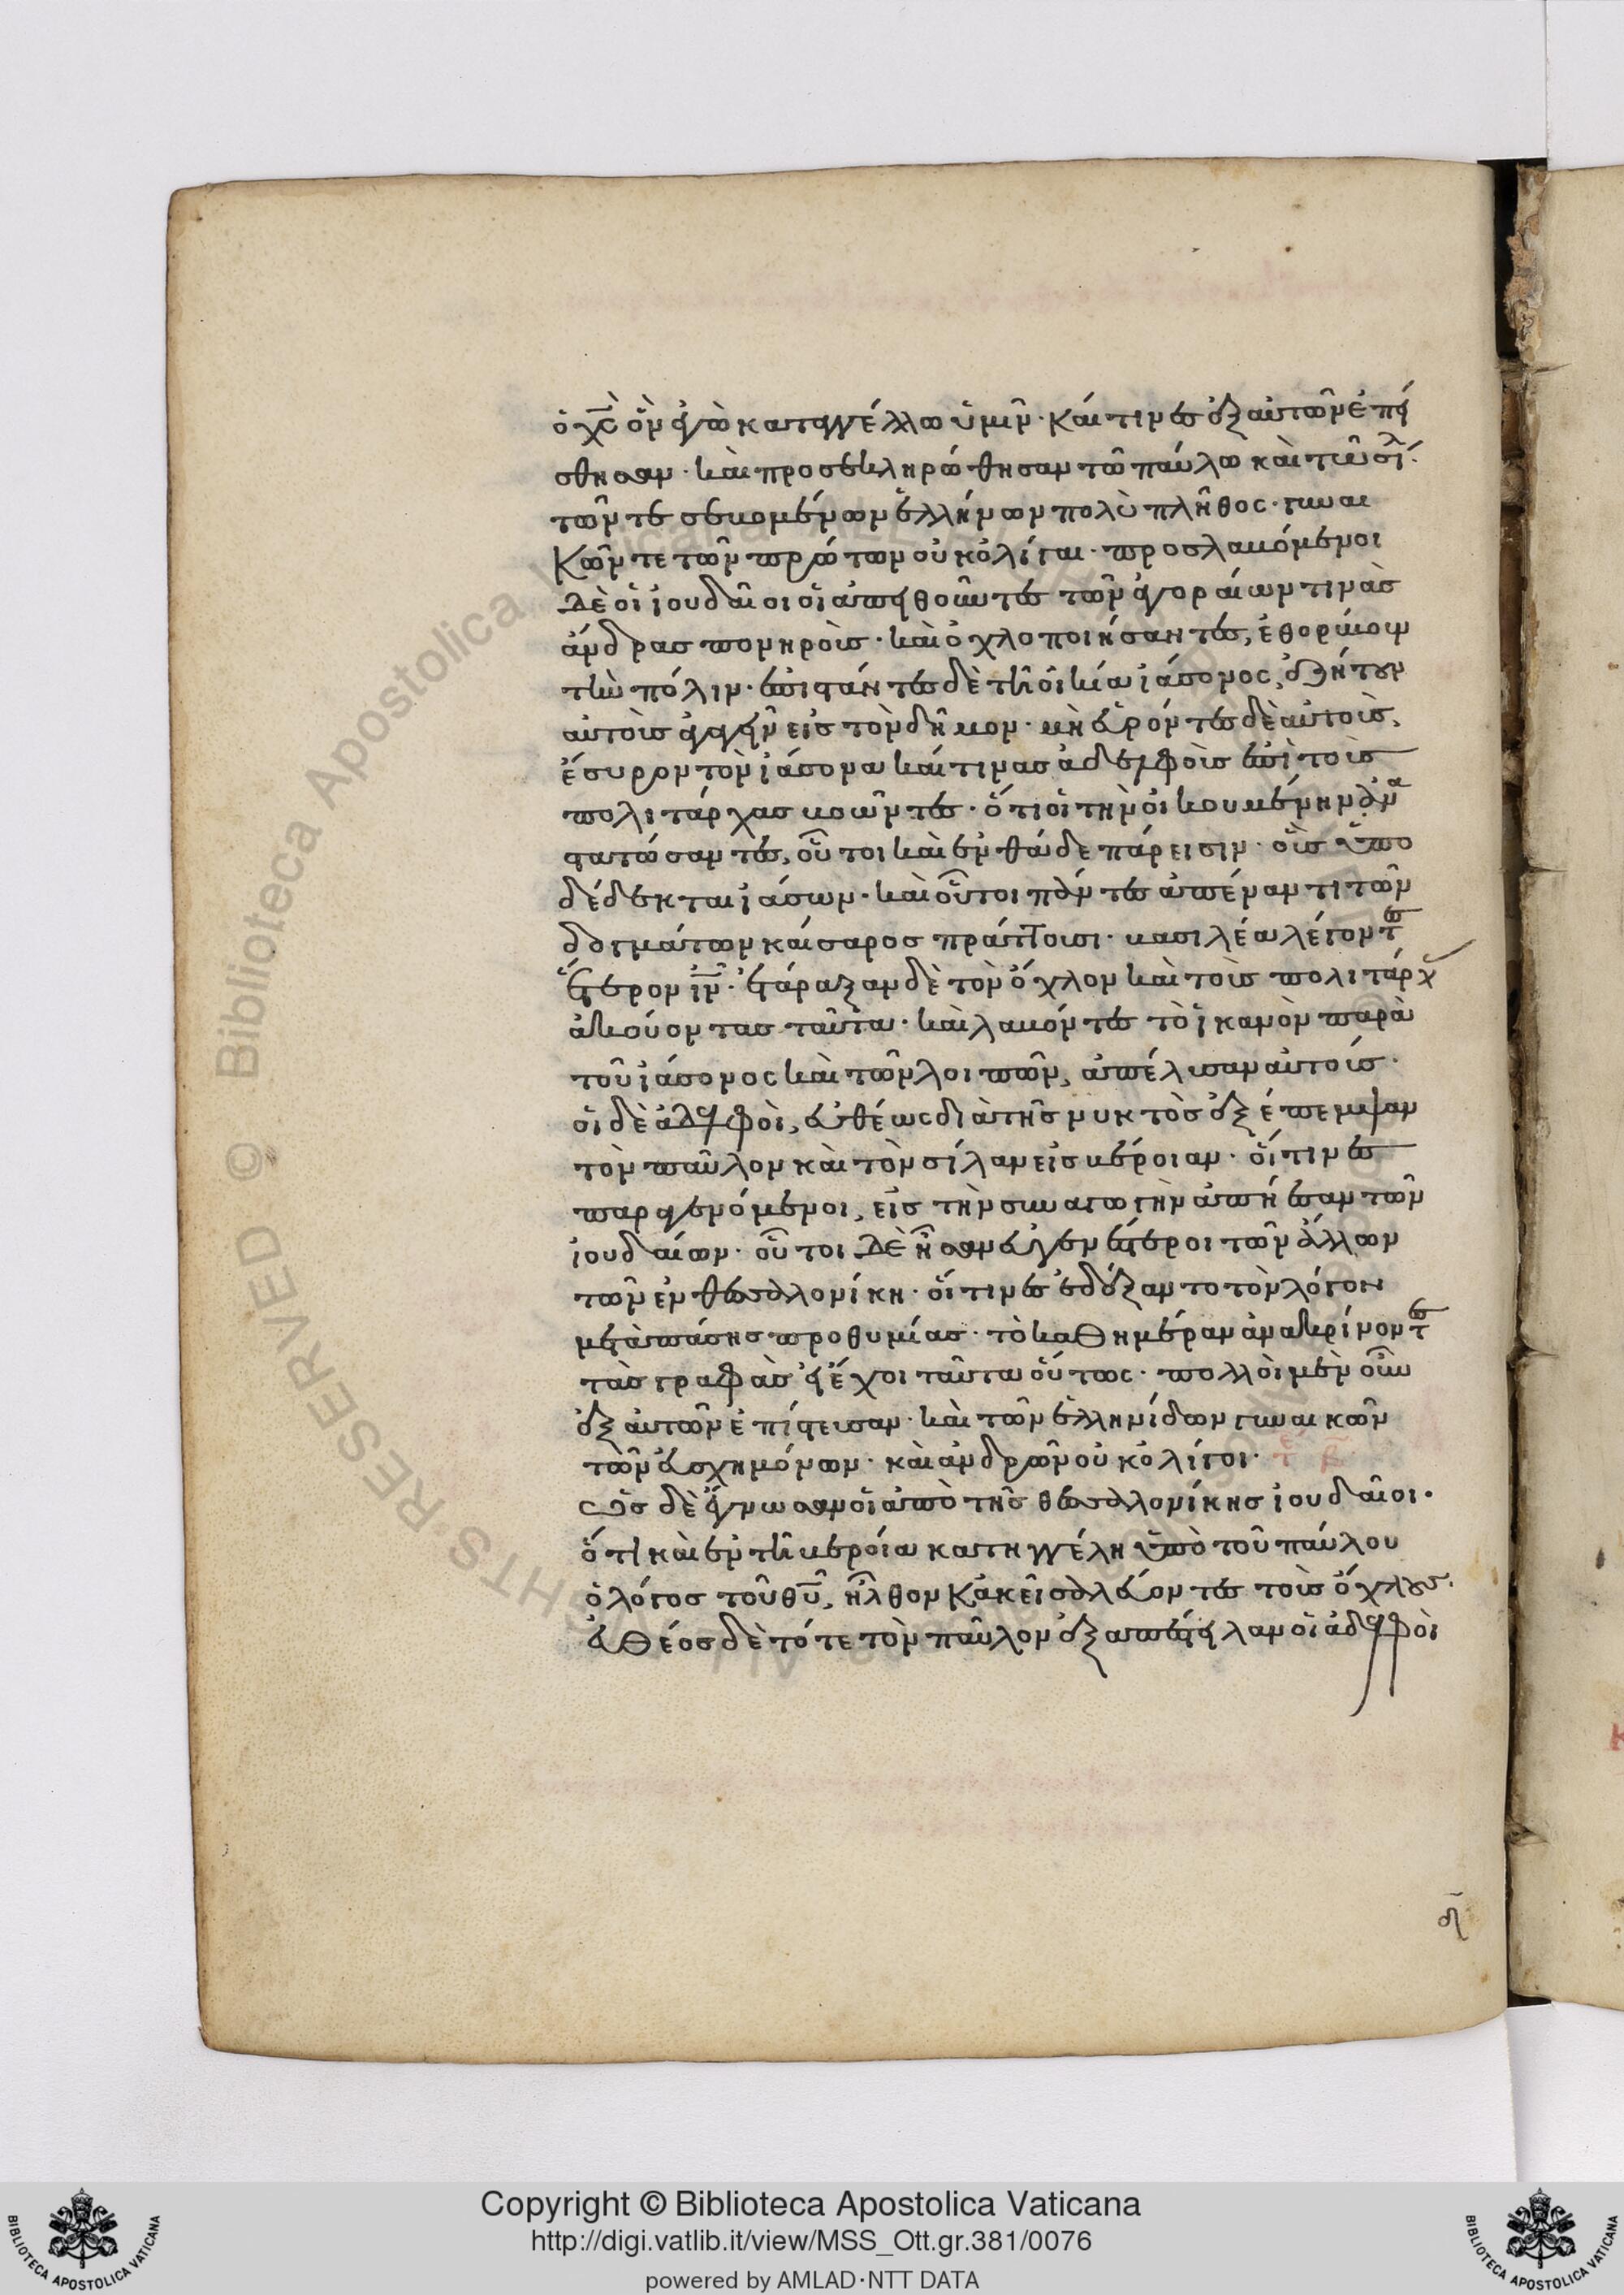 ὁ χς̄ ὃν ἐγὼ καταγγέλλω ὑμῖν· καί τινες ἐξ αὐτῶν ἐπεί
σθησαν· καὶ προσεκληρώθησαν τῶ παύλω καὶ τῶ σίλ·
τῶν τε σεβομένων ἑλλήνων πολὺ πλῆθος· γυναι
κῶν τε τῶν πρώτων οὐκ ὀλίγαι· προσλαβόμενοι
δὲ οἱ ἰουδαῖοι οἱ ἀπειθοῦντες τῶν ἀγοραίων τινὰς
ἄνδρας πονηροὺς· καὶ ὀχλοποιήσαντες, ἐθορύβουν
τὴν πόλιν· ἐπιστάντες δὲ τῆ οἰκία ἰάσονος, ἐζήτουν
αὐτοὺς ἀγαγεῖν εἰς τὸν δῆμον· μὴ εὑρόντες δὲ αὐτοὺς,
ἔσυρον τὸν ἰάσονα καί τινας ἀδελφοὺς ἐπὶ τοὺς
πολιτάρχας βοῶντες· ὅτι οἱ τὴν οἰκουμένην ἀνα
στατώσαντες, οὗτοι καὶ ἐνθάδε πάρεισιν· οὓς ὑπο
δέδεκται ἰάσων· καὶ οὗτοι πάντες ἀπέναντι τῶν
δογμάτων καίσαρος πράττουσι· βασιλέα λέγοντες
ἕτερον ιν̄· ἐτάραξαν δὲ τὸν ὄχλον καὶ τοὺς πολιτάρχ
ἀκούοντας ταῦτα· καὶ λαβόντες τὸ ἱκανὸν παρὰ
τοῦ ἰάσονος καὶ τῶν λοιπῶν, ἀπέλυσαν αὐτούς·
οἱ δὲ ἀδελφοὶ, εὐθέως διὰ τῆς νυκτὸς ἐξέπεμψαν
τὸν παῦλον καὶ τὸν σίλαν εἰς βέροιαν· οἵτινες
παραγενόμενοι, εἰς τὴν συναγωγὴν ἀπήεσαν τῶν
ἰουδαίων· οὗτοι δὲ ἦσαν εὐγενέστεροι τῶν ἄλλων
τῶν ἐν θεσσαλονίκη· οἵτινες ἐδέξαντο τὸν λόγον
μετὰ πάσης προθυμίας· τὸ καθημέραν ἀνακρίνοντες
τὰς γραφὰς εἰ ἔχοι ταῦτα οὕτως· πολλοὶ μὲν οὖν
ἐξ αὐτῶν ἐπίστευσαν· καὶ τῶν ἑλληνίδων γυναικῶν
τῶν εὐσχημόνων· καὶ ἀνδρῶν οὐκ ὀλίγοι·
ὡς δὲ ἔγνωσαν οἱ ἀπὸ τῆς θεσσαλονίκης ἰουδαῖοι·
ὅτι καὶ ἐν τῆ βεροία κατηγγέλη ὑπὸ τοῦ παύλου
ὁ λόγος τοῦ θῡ, ἦλθον κἀκεῖ σαλεύοντες τοὺς ὄχλους·
εὐθέος δὲ τότε τὸν παῦλον ἐξαπέστειλαν οἱ ἀδελφοὶ
Copyright © Biblioteca Apostolica Vaticana
http://digi.vatlib.it/view/MSS_Ott.gr.381/0076
powered by AMLAD·NTT DATA
BIBLIOTECA APOSTOLICA VATICANA
BIBLIOTECA APOSTOLICA VATICANA